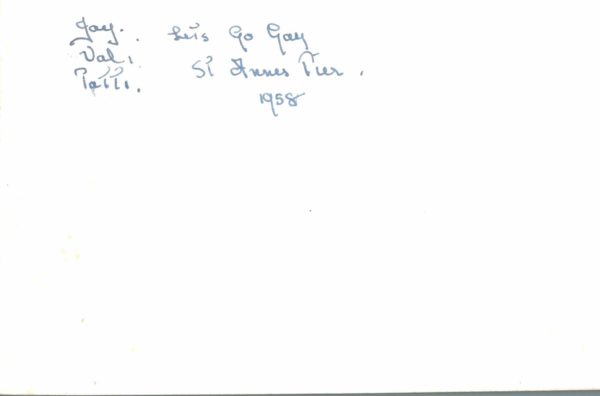 Joy. Let's Go Gay
Val.
St Annes Pier.
Patti.
1958